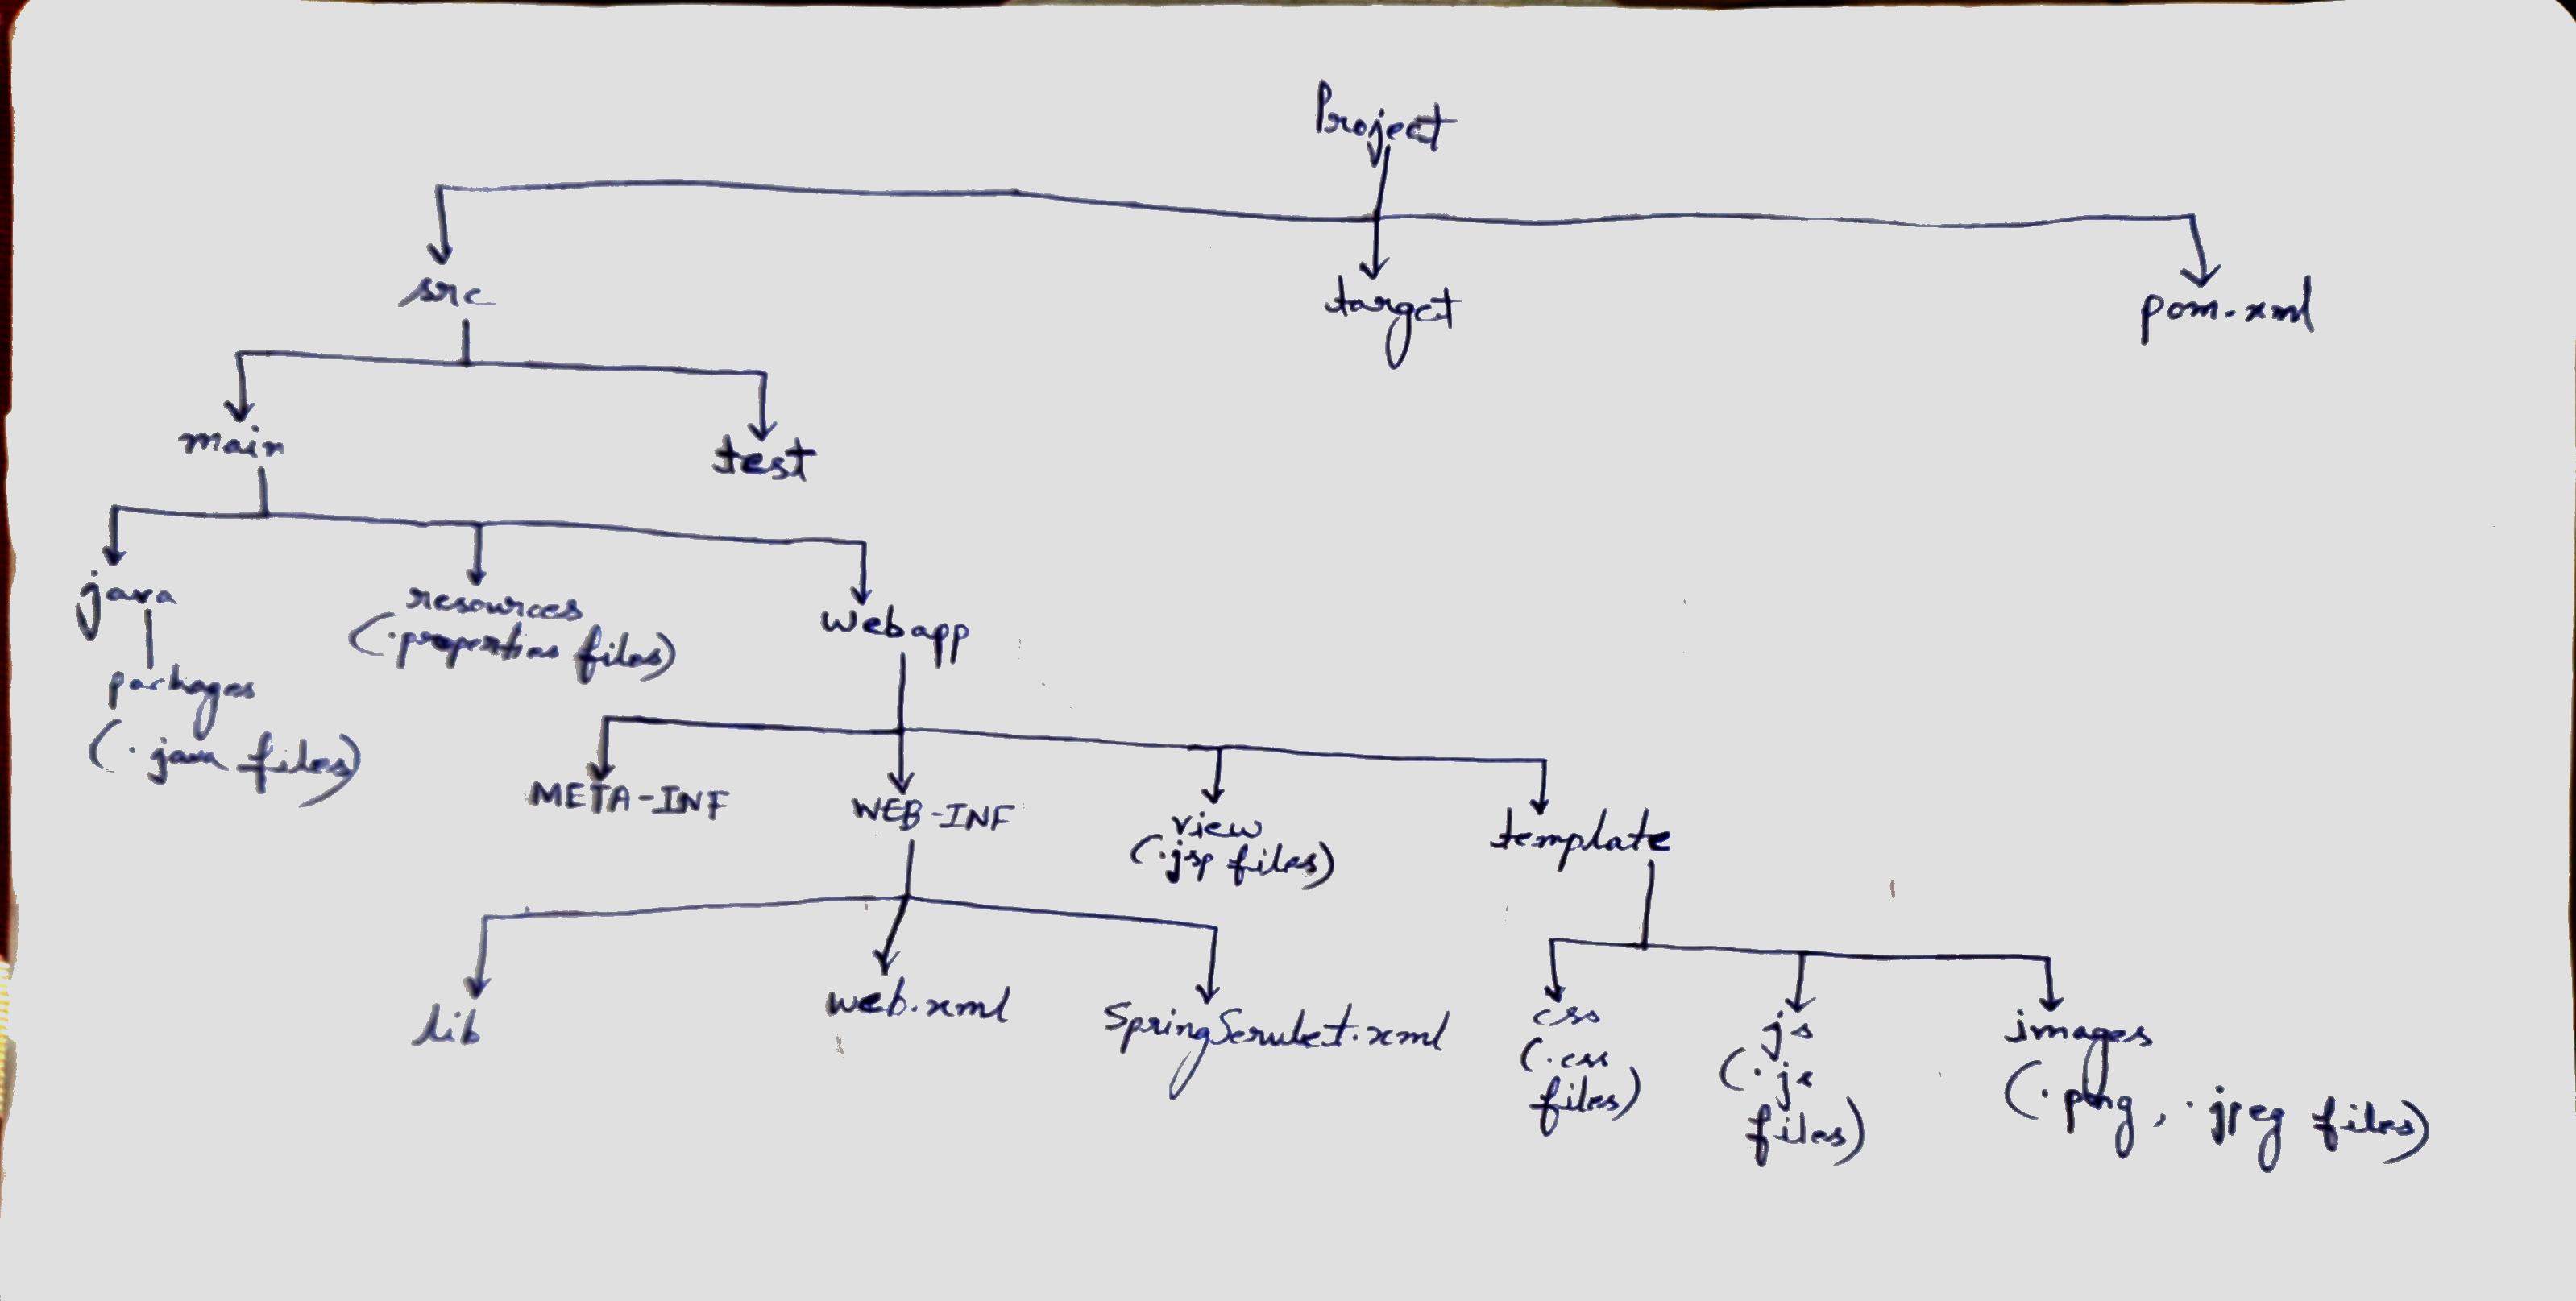 Project
src
target
pom.xml
main
test
java
resources
(.properties files)
webapp
packages
(.java files)
META-INF
WEB-INF
view
(.jsp files)
template
lib
web.xml
SpringServlet.xml
css
(.css
files)
js
(.js
files)
images
(.png, .jpeg files)